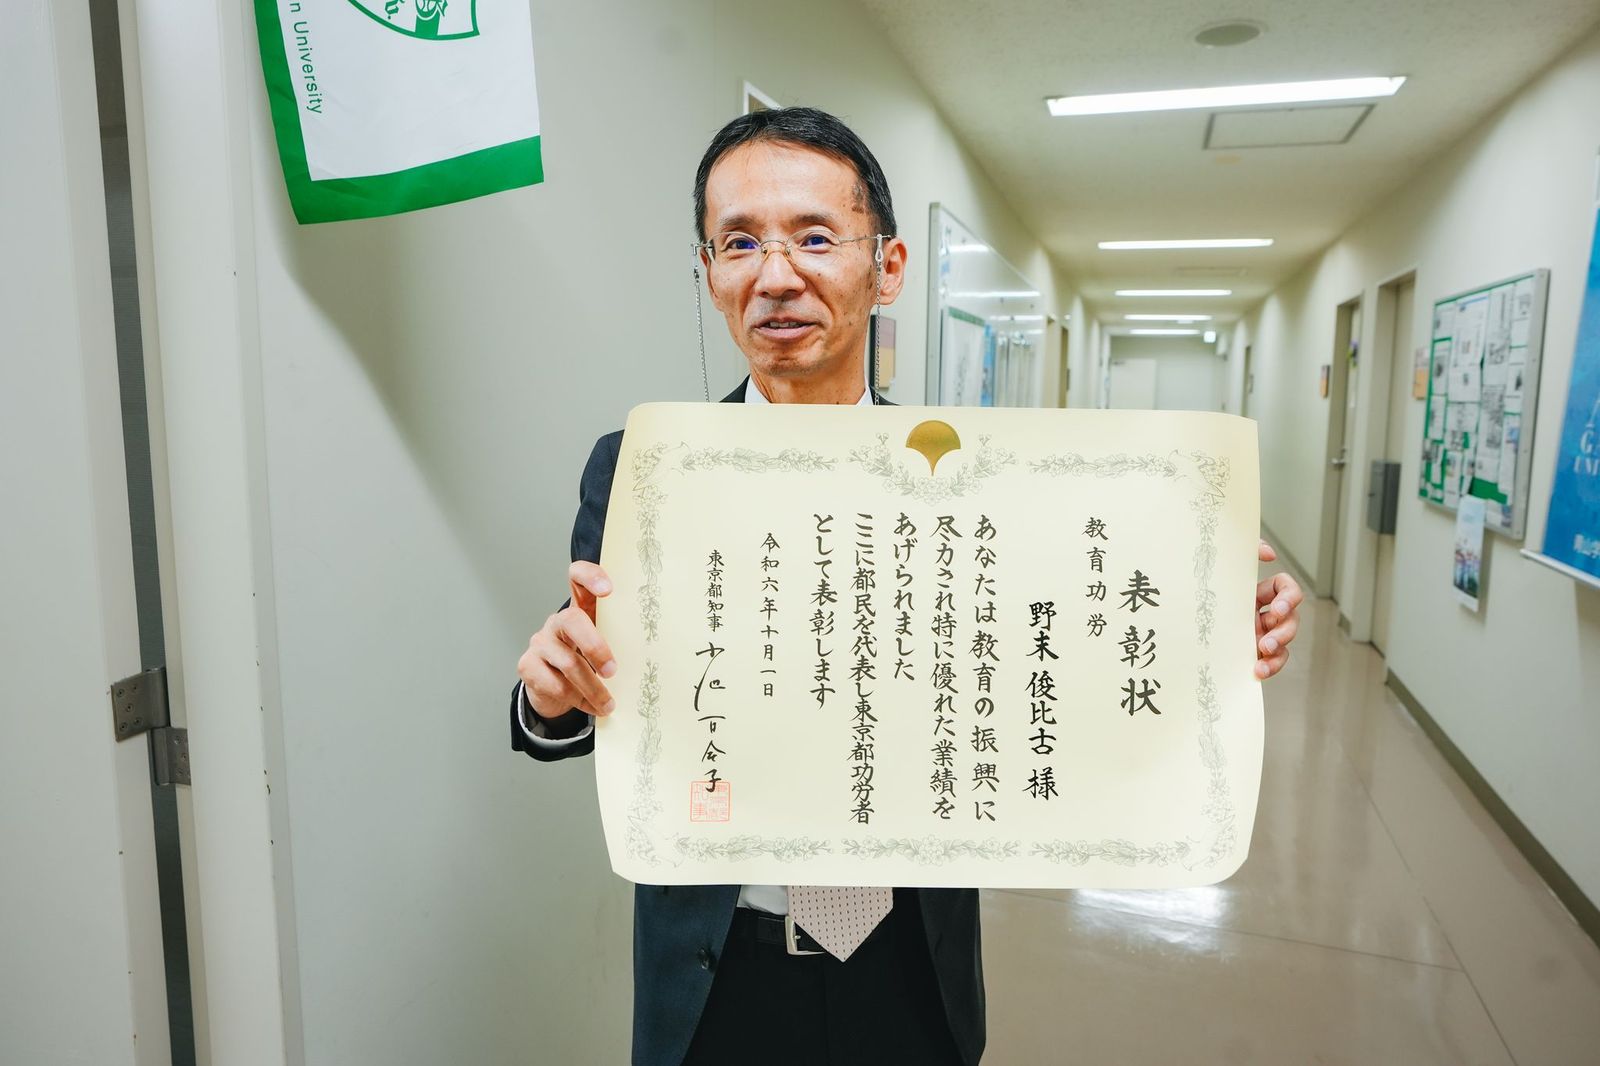 表彰状
教育功労
野末俊比古 様
あなたは教育の振興に
尽力され特に優れた業績を
あげられました
ここに都民を代表し東京都功労者
として表彰します
令和六年十月一日
東京都知事 小池百合子
n University